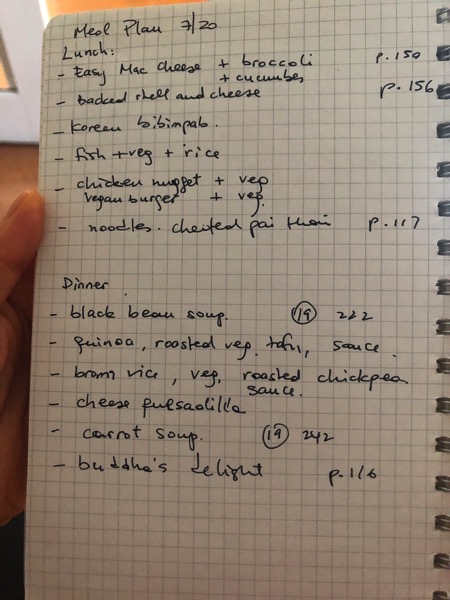 Meal Plan 7/20
Lunch:
- Easy Mac Cheese + broccoli p. 150
+ cucumber
- backed shell and cheese p. 156
- Koreen bibimpab.
- fish + veg + rice
- chicken nugget + veg
vegan burger + veg.
- noodles. cheated pai thai p. 117
Dinner
- black bean soup. 19 222
- quinoa, roasted veg. tofu, sauce.
- brown rice, veg, roasted chickpea
sauce.
- cheese quesadilla
- carrot soup. 19 242
- buddha's delight p. 116